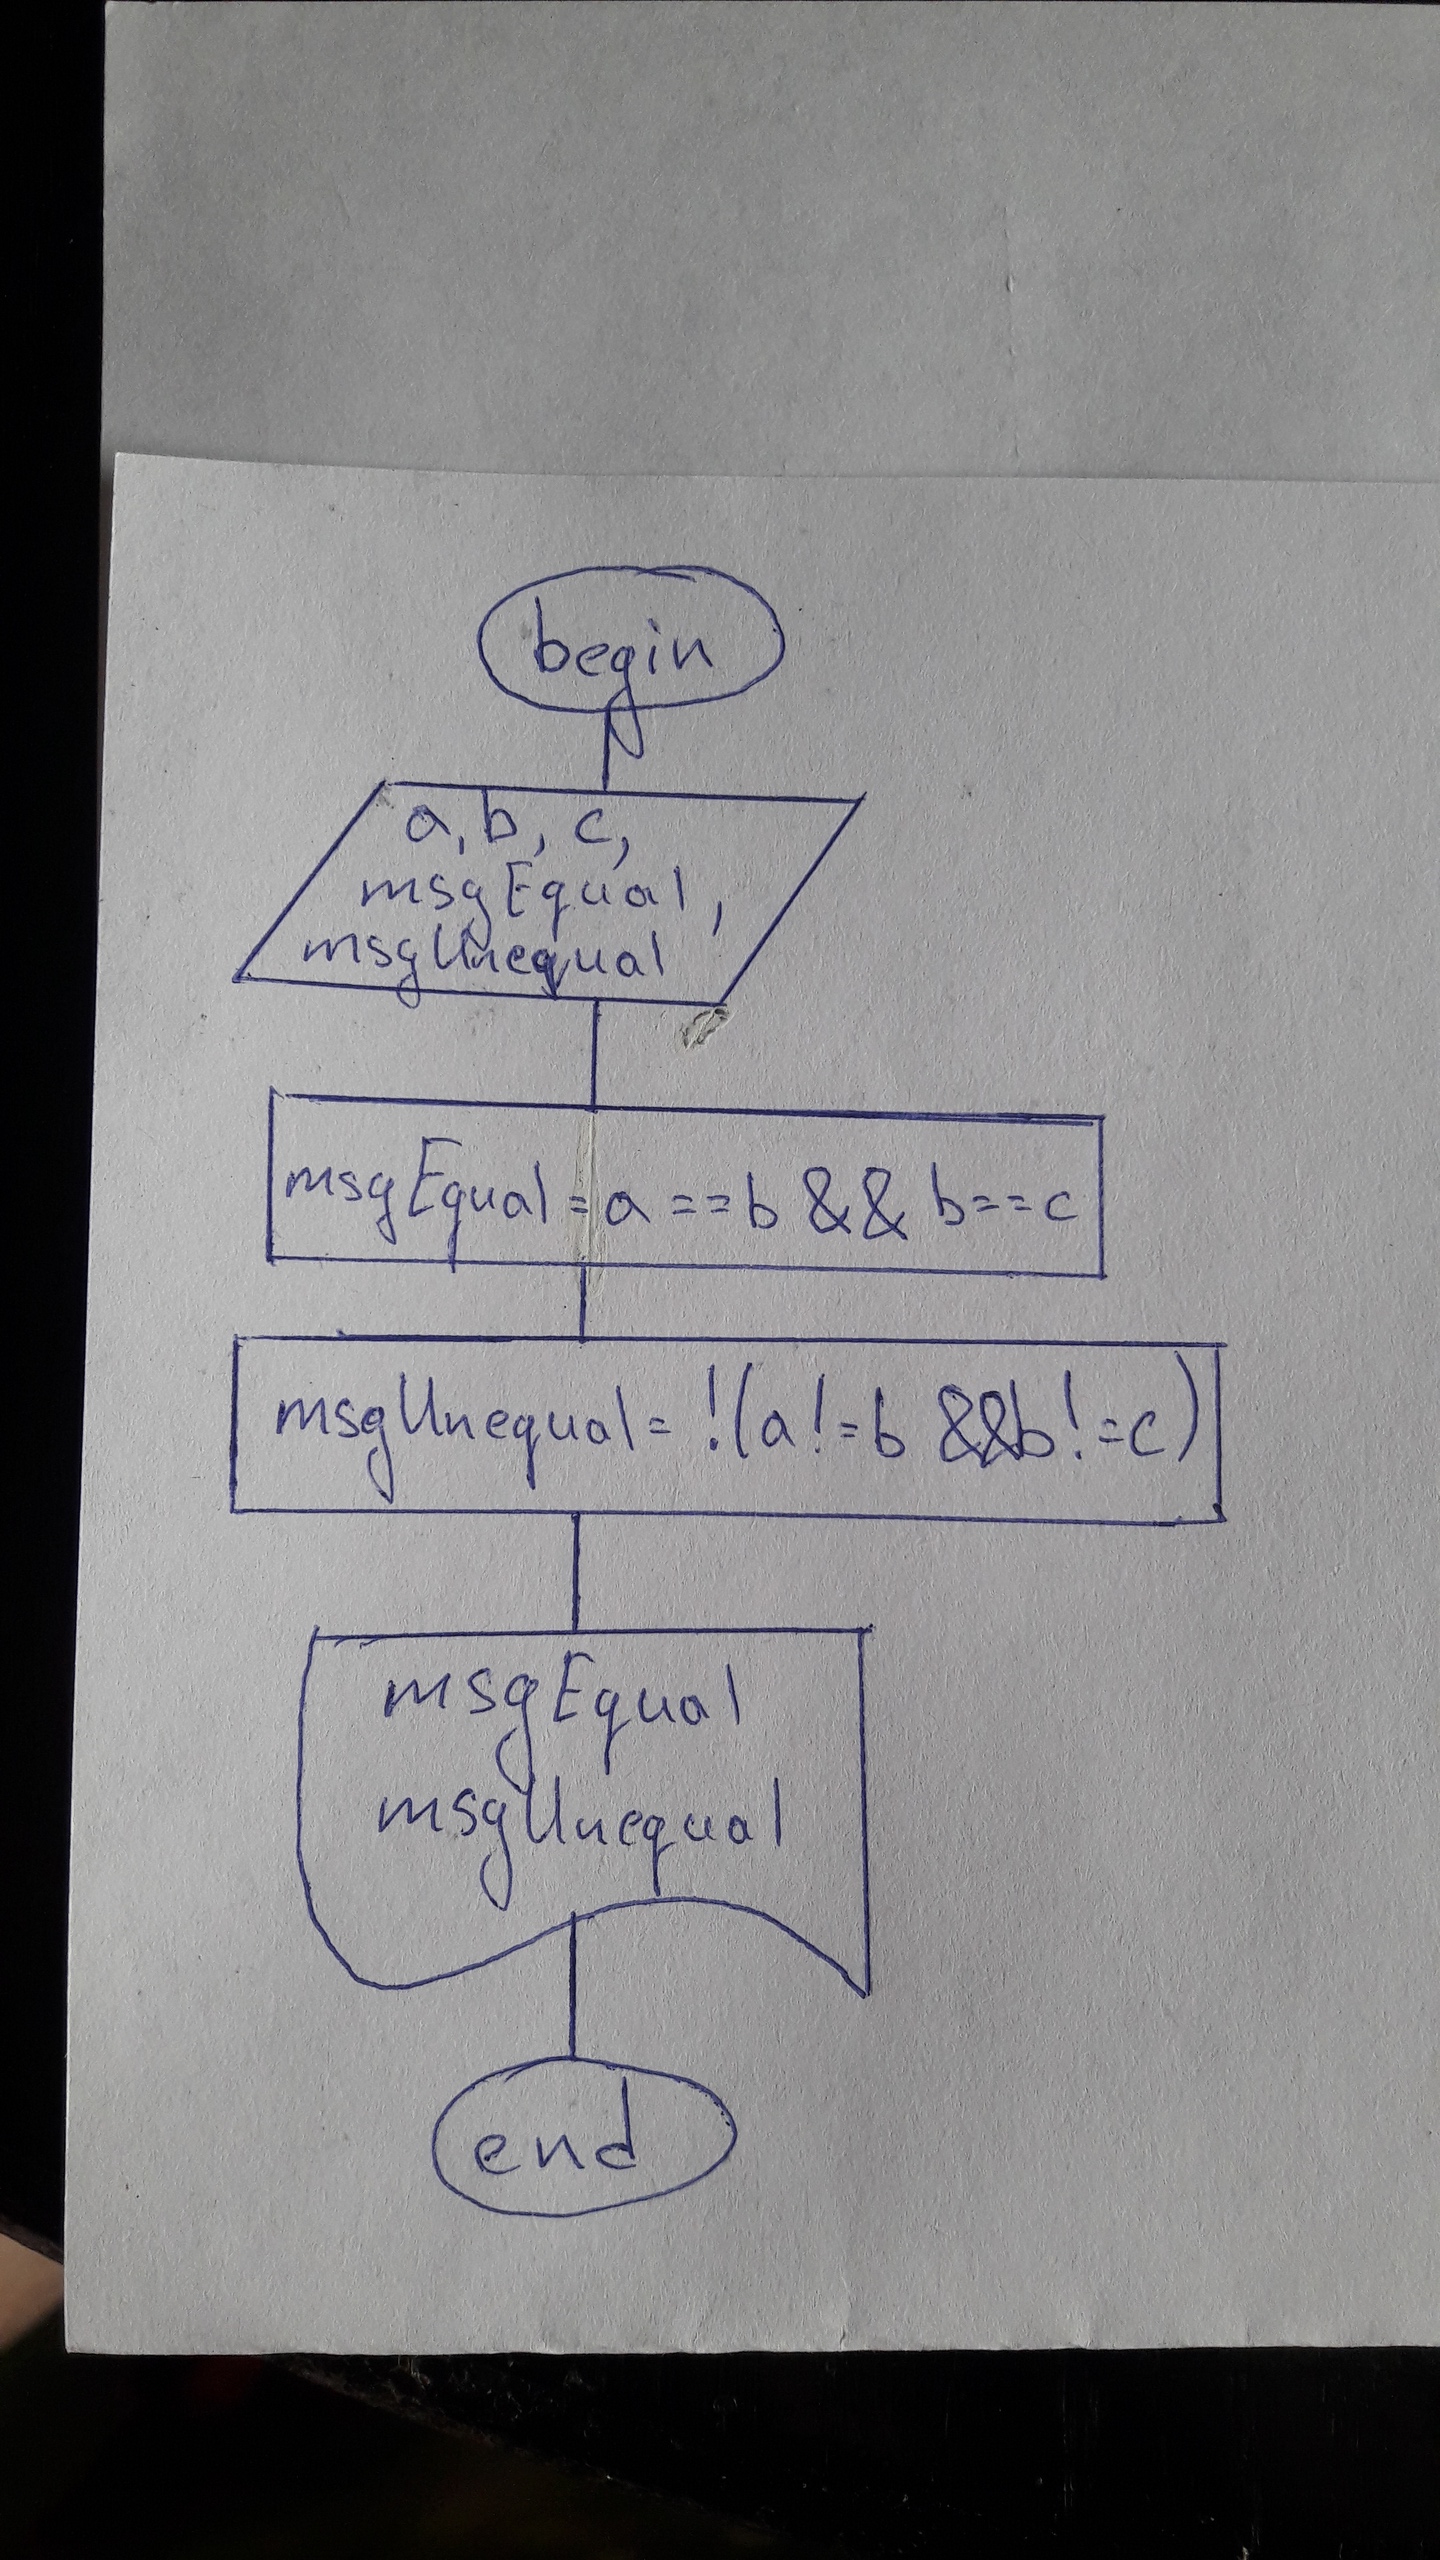 begin
a, b, c,
msgEqual,
msgUnequal
msgEqual = a == b && b == c
msgUnequal = !(a != b && b != c)
msgEqual
msgUnequal
end